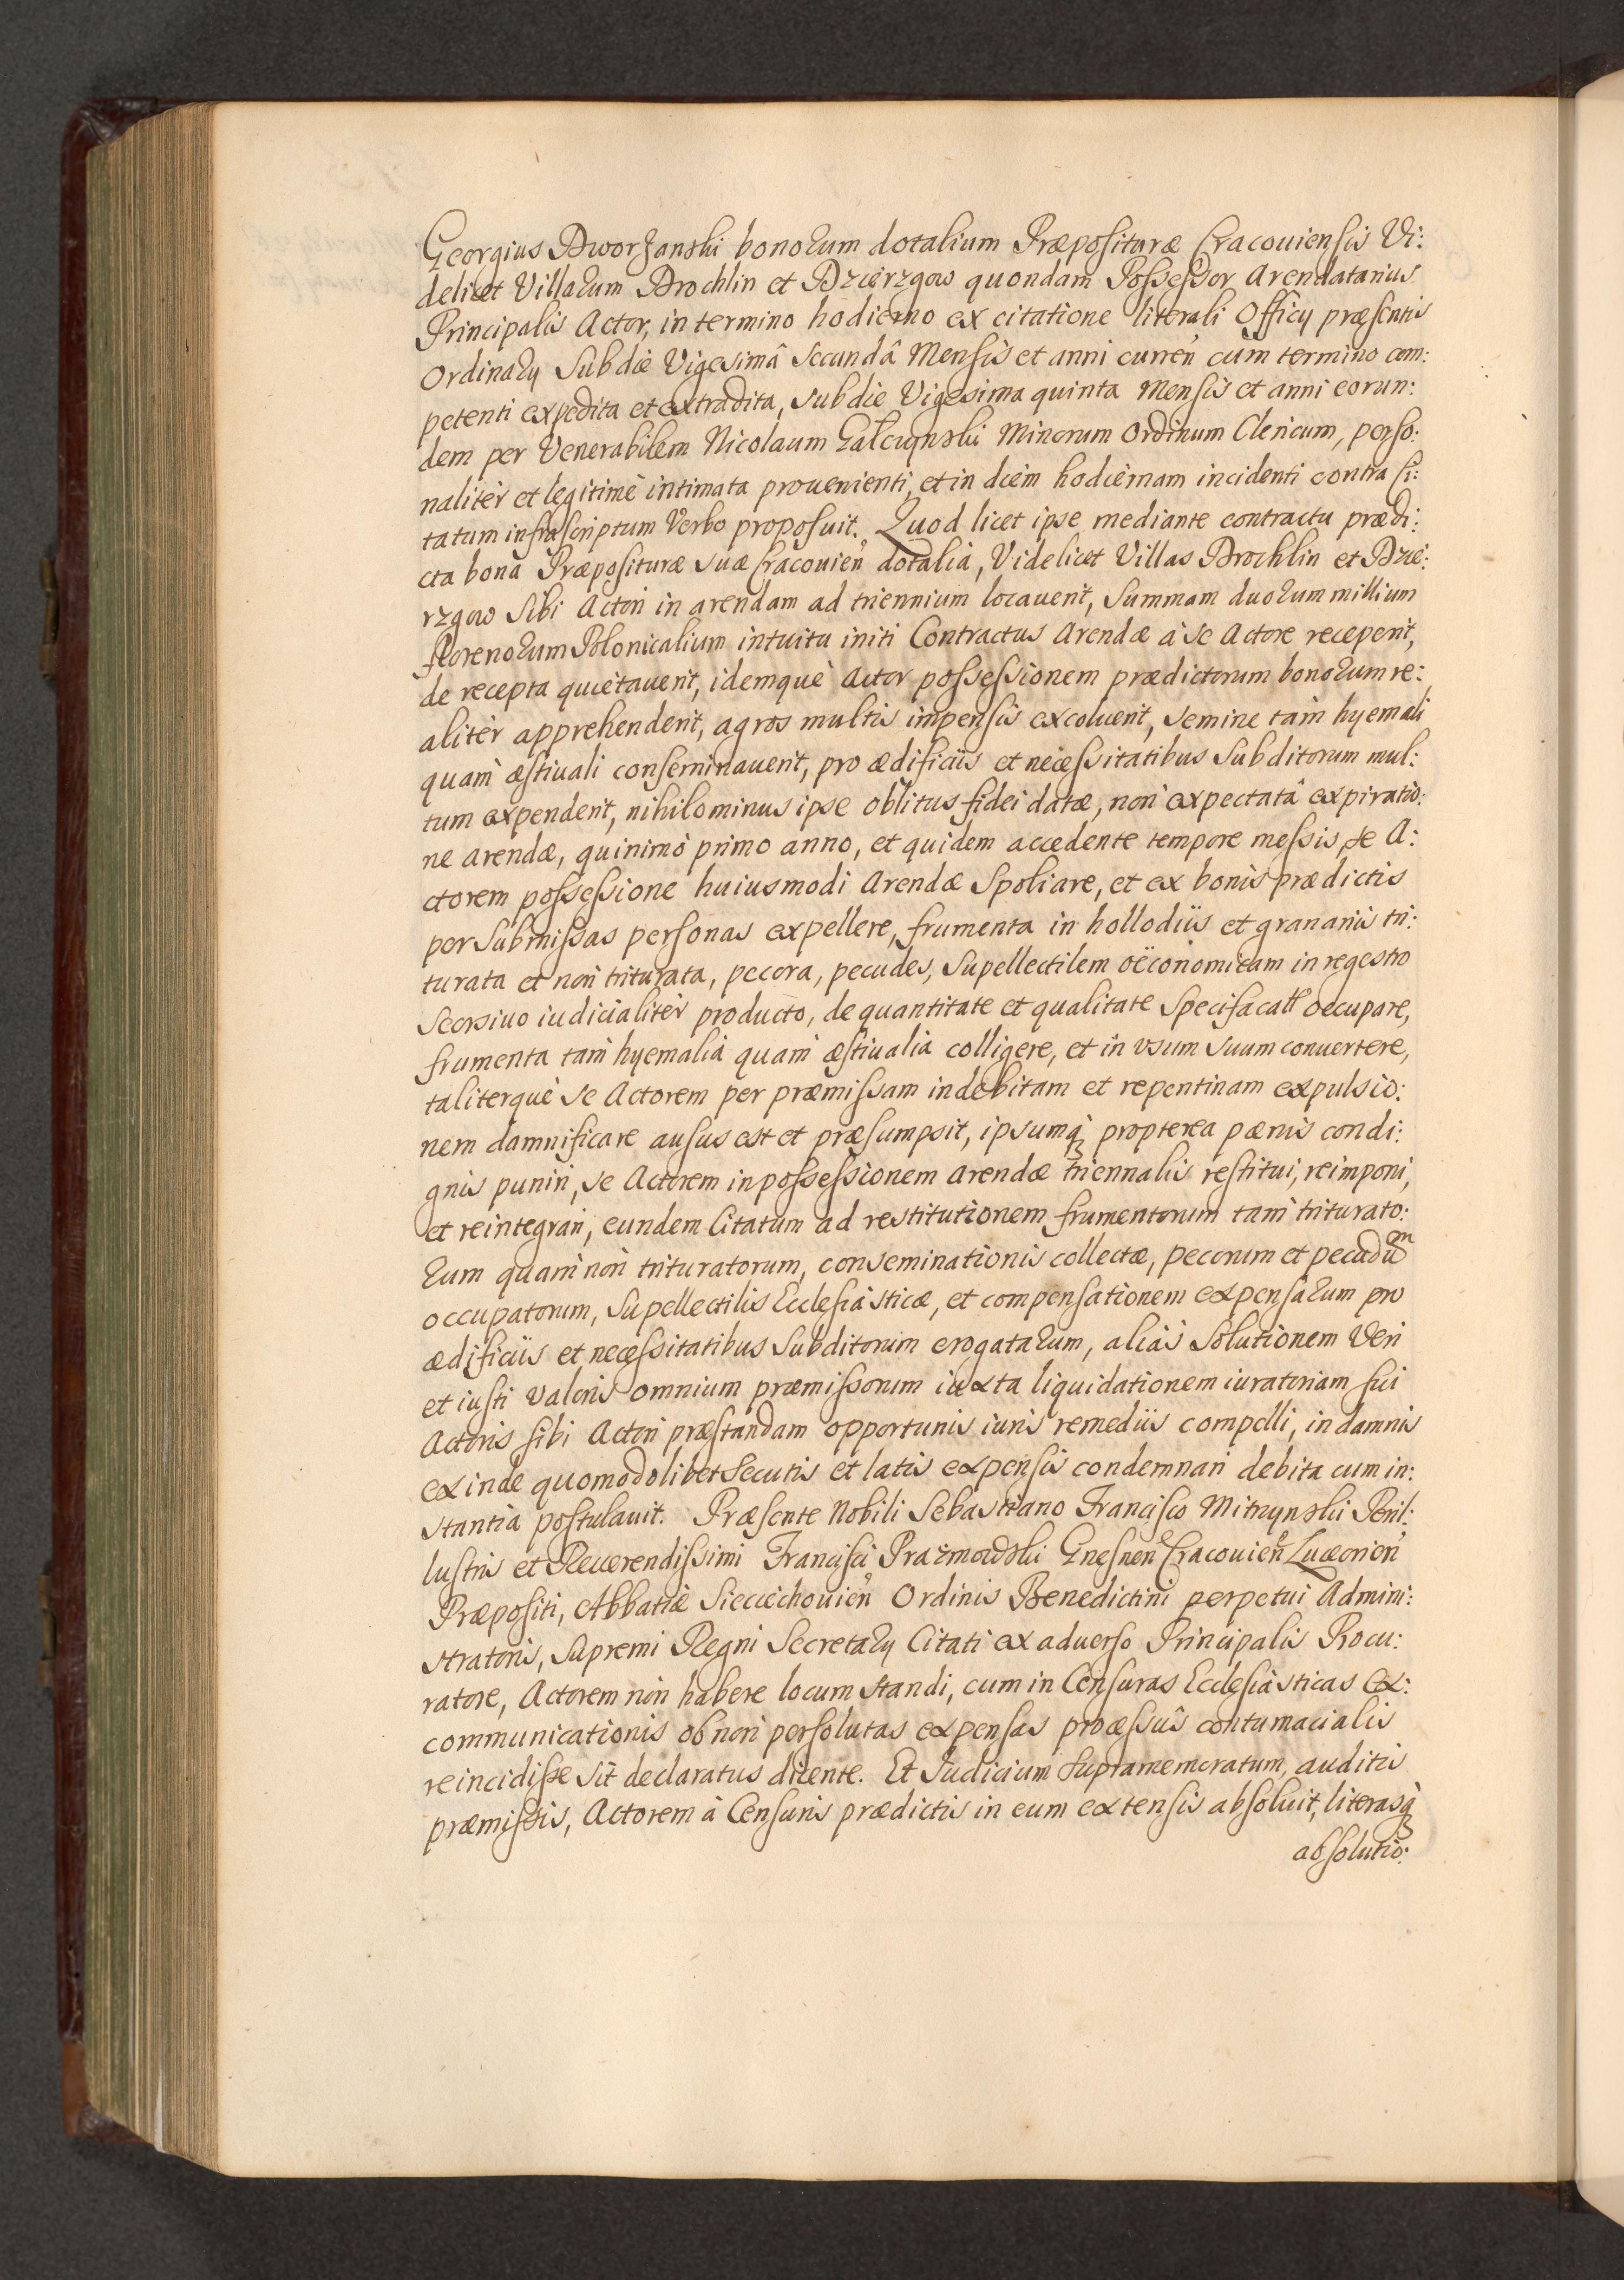 Georgius Dworzanski bonorum dotalium Præposituræ Cracouiensis Vi:
delicet Villarum Drochlin et Dzierzgow quondam Possessor Arendatarius
Principalis Actor, in termino hodierno ex citatione literali Officy præsentis
Ordinary sub die Vigesimâ secundâ Mensis et anni curren̄ cum termino com:
petenti expedita et extradita, sub die Vigesima quinta Mensis et anni eorun:
dem per Venerabilem Nicolaum Galczynski Minorum Ordinum Clericum, perso:
naliter et legitime intimata prouenienti, et in diem hodiernam incidenti contra Ci:
tatum infrascriptum Verbo proposuit. Quod licet ipse mediante contractu prædi:
cta bona Præposituræ suæ Cracouien̄ dotalia, Videlicet Villas Drochlin et Dzie:
rzgow sibi Actori in arendam ad triennium locauerit, Summam duorum millium
florenorum Polonicalium intuitu initi Contractus Arendæ à se Actore receperit,
de recepta quietauerit, idemquè Actor possessionem prædictorum bonorum re:
aliter apprehenderit, agros multis impensis excoluerit, semine tam hyemali
quam æstiuali conseminauerit, pro ædificiis et necessitatibus Subditorum mul:
tum expenderit, nihilominus ipse oblitus fidei datæ, non expectatâ expiratio:
ne Arendæ, quinimò primo anno, et quidem accedente tempore messis, se A:
ctorem possessione huiusmodi Arendæ Spoliare, et ex bonis prædictis
per submissas personas expellere, frumenta in hollodiis et granariis tri:
turata et non triturata, pecora, pecudes, Supellectilem oëconomicam in regestro
seorsiuo iudicialiter producto, de quantitate et qualitate Specificatt occupare,
frumenta tam hyemalia quam æstiualia colligere, et in vsum suum conuertere,
taliterquè se Actorem per præmissam indebitam et repentinam expulsio:
nem damnificare ausus est et præsumpsit, ipsumq́ꝫ propterea pænis condi:
gnis puniri, se Actorem in possessionem Arendæ triennalis restitui, reimponi,
et reintegrari, eundem Citatum ad restitutionem frumentorum tam triturato:
rum quam non trituratorum, conseminationis collectæ, pecorum et pecudum
occupatorum, Supellectilis Ecclesiasticæ, et compensationem expensarum pro
ædificiis et necessitatibus Subditorum erogatarum, aliàs Solutionem Veri
et iusti valoris omnium præmissorum iuxta liquidationem iuratoriam sui
Actoris sibi Actori præstandam opportunis iuris remediis compelli, in damnis
exinde quomodolibet secutis et latis expensis condemnari debita cum in:
stantia postulauit. Præsente Nobili Sebastiano Francisco Mitnynski Peril:
lustris et Reuerendissimi Francisci Prazmowski Gnesnen̄ Cracouien̄ Luceorien̄
Præpositi, Abbatiæ Sieciechouien̄ Ordinis Benedictini perpetui Admini:
stratoris, Supremi Regni Secretary Citati ex aduerso Principalis Procu:
ratore, Actorem non habere locum standi, cum in Censuras Ecclesiasticas Ex:
communicationis ob non persolutas expensas processûs contumacialis
reincidisse sit declaratus dicente. Et Iudicium supramemoratum, auditis
præmissis, Actorem à Censuris prædictis in eum extensis absoluit, literasq́ꝫ
absolutio: